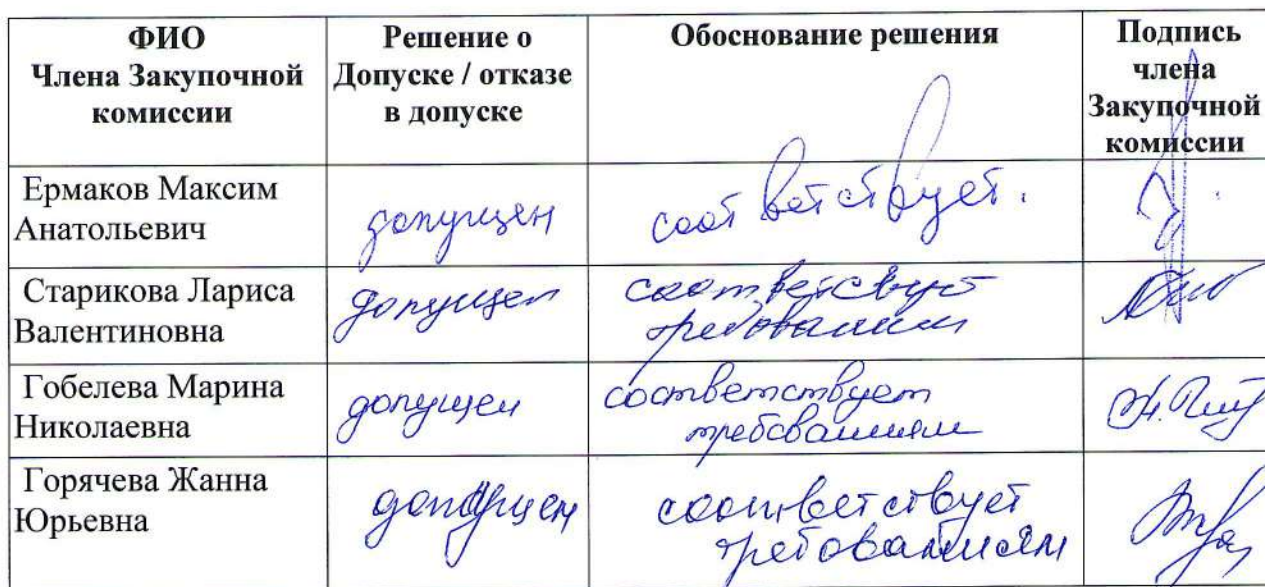 ФИО
Члена Закупочной
комиссии
Решение о
Допуске / отказе
в допуске
Обоснование решения
Подпись
члена
Закупочной
комиссии
Ермаков Максим
Анатольевич
допущен
соответствует.
Старикова Лариса
Валентиновна
допущен
соответствует
требованиям
Гобелева Марина
Николаевна
допущен
соответствует
требованиям
Горячева Жанна
Юрьевна
допущен
соответствует
требованиям